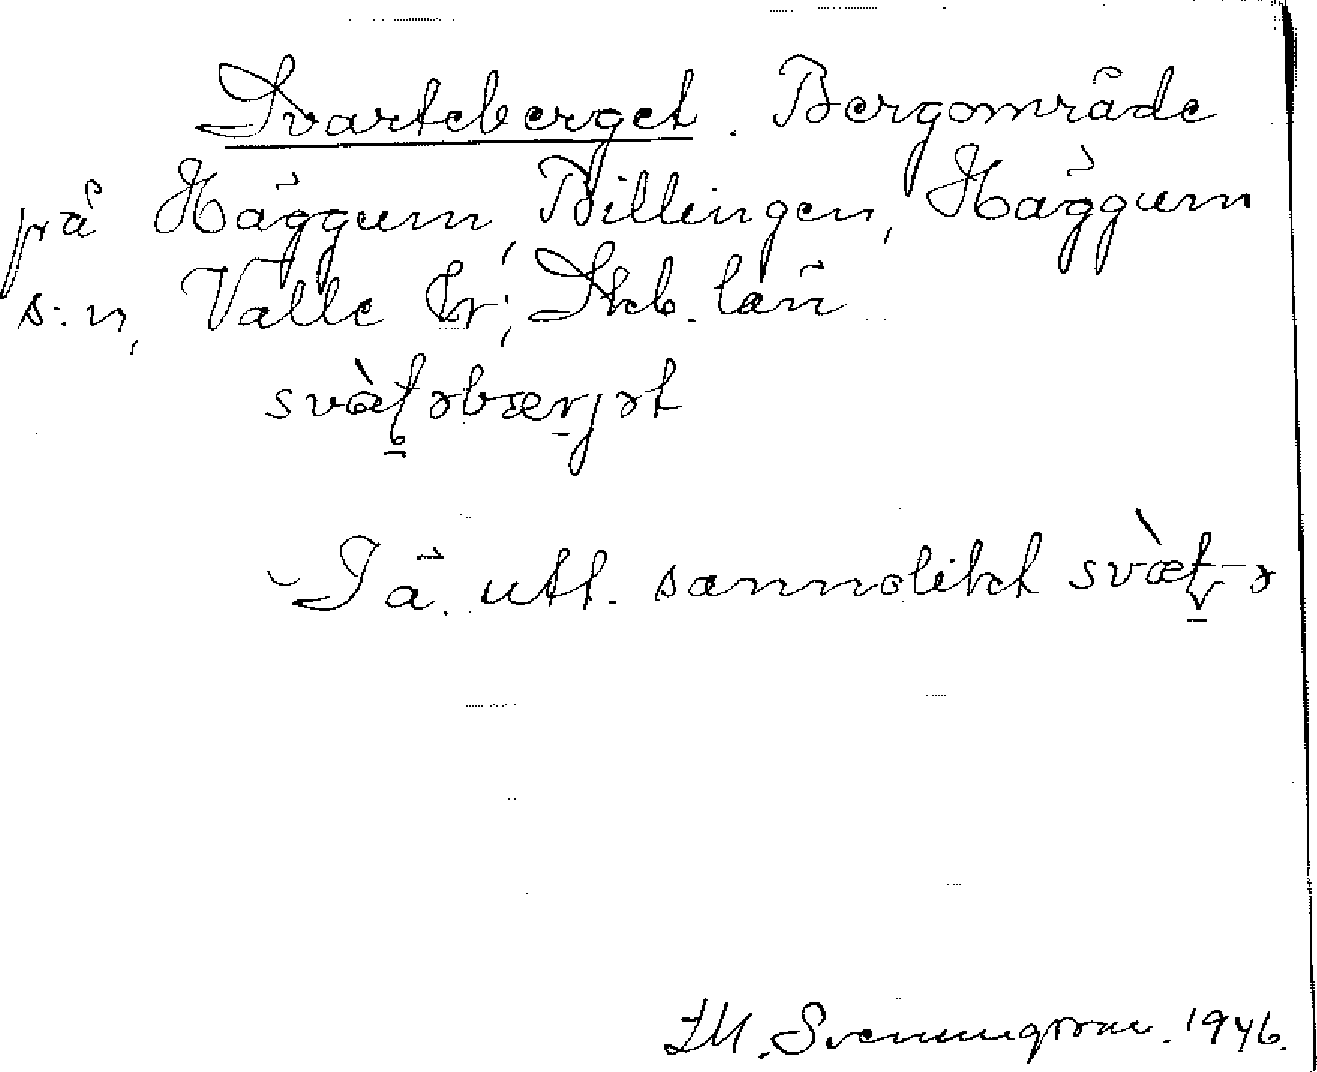 Svarteberget. Bergområde
på Häggum Billingen, Häggum
s:n, Valle hr, Skb. län
svàʈəbærjət
Iä. utt. sannolikt svæ̀ʈ-ə
Svenungsson. 1946.